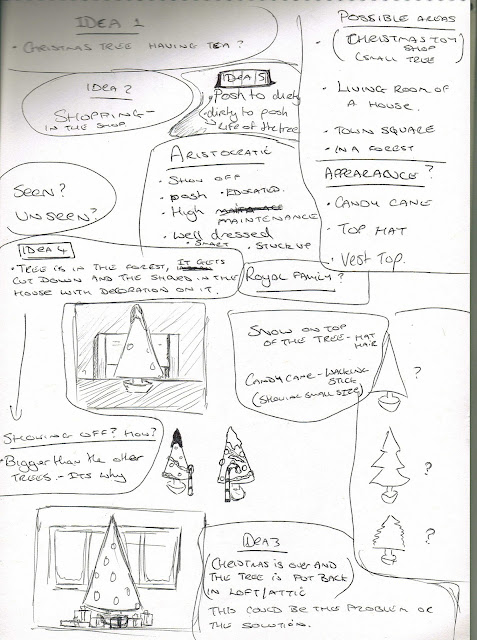 IDEA 1
• CHRISTMAS TREE HAVING TEA?
POSSIBLE AREAS
• (CHRISTMAS TOY
SHOP
(SMALL TREE)
• LIVING ROOM OF
A HOUSE.
• TOWN SQUARE
• IN A FOREST
IDEA 2
SHOPPING -
IN THE SHOP
IDEA 5
• Posh to dirty
• dirty to posh
life of the tree
ARISTOCRATIC
• SHOW OFF
• posh • EDUCATED.
• High
MAINTENANCE
• well dressed
• SMART • STUCK UP
APPEARANCE?
• CANDY CANE
• TOP HAT
• VEST TOP.
SEEN?
UNSEEN?
IDEA 4
• TREE IS IN THE FOREST, IT GETS
CUT DOWN AND THE SHOVED IN THE
HOUSE WITH DECORATION ON IT.
ROYAL FAMILY?
SNOW ON TOP
OF THE TREE - HAT
HAIR
CANDY CANE - WALKING
STICK
(SHOWING SMALL SIZE)
?
?
?
SHOWING OFF? HOW?
• Bigger than the other
TREES. - ITS WHY
IDEA 3
(CHRISTMAS IS OVER AND
THE TREE IS PUT BACK
IN LOFT/ATTIC)
THIS COULD BE THE PROBLEM OR
THE SOLUTION.